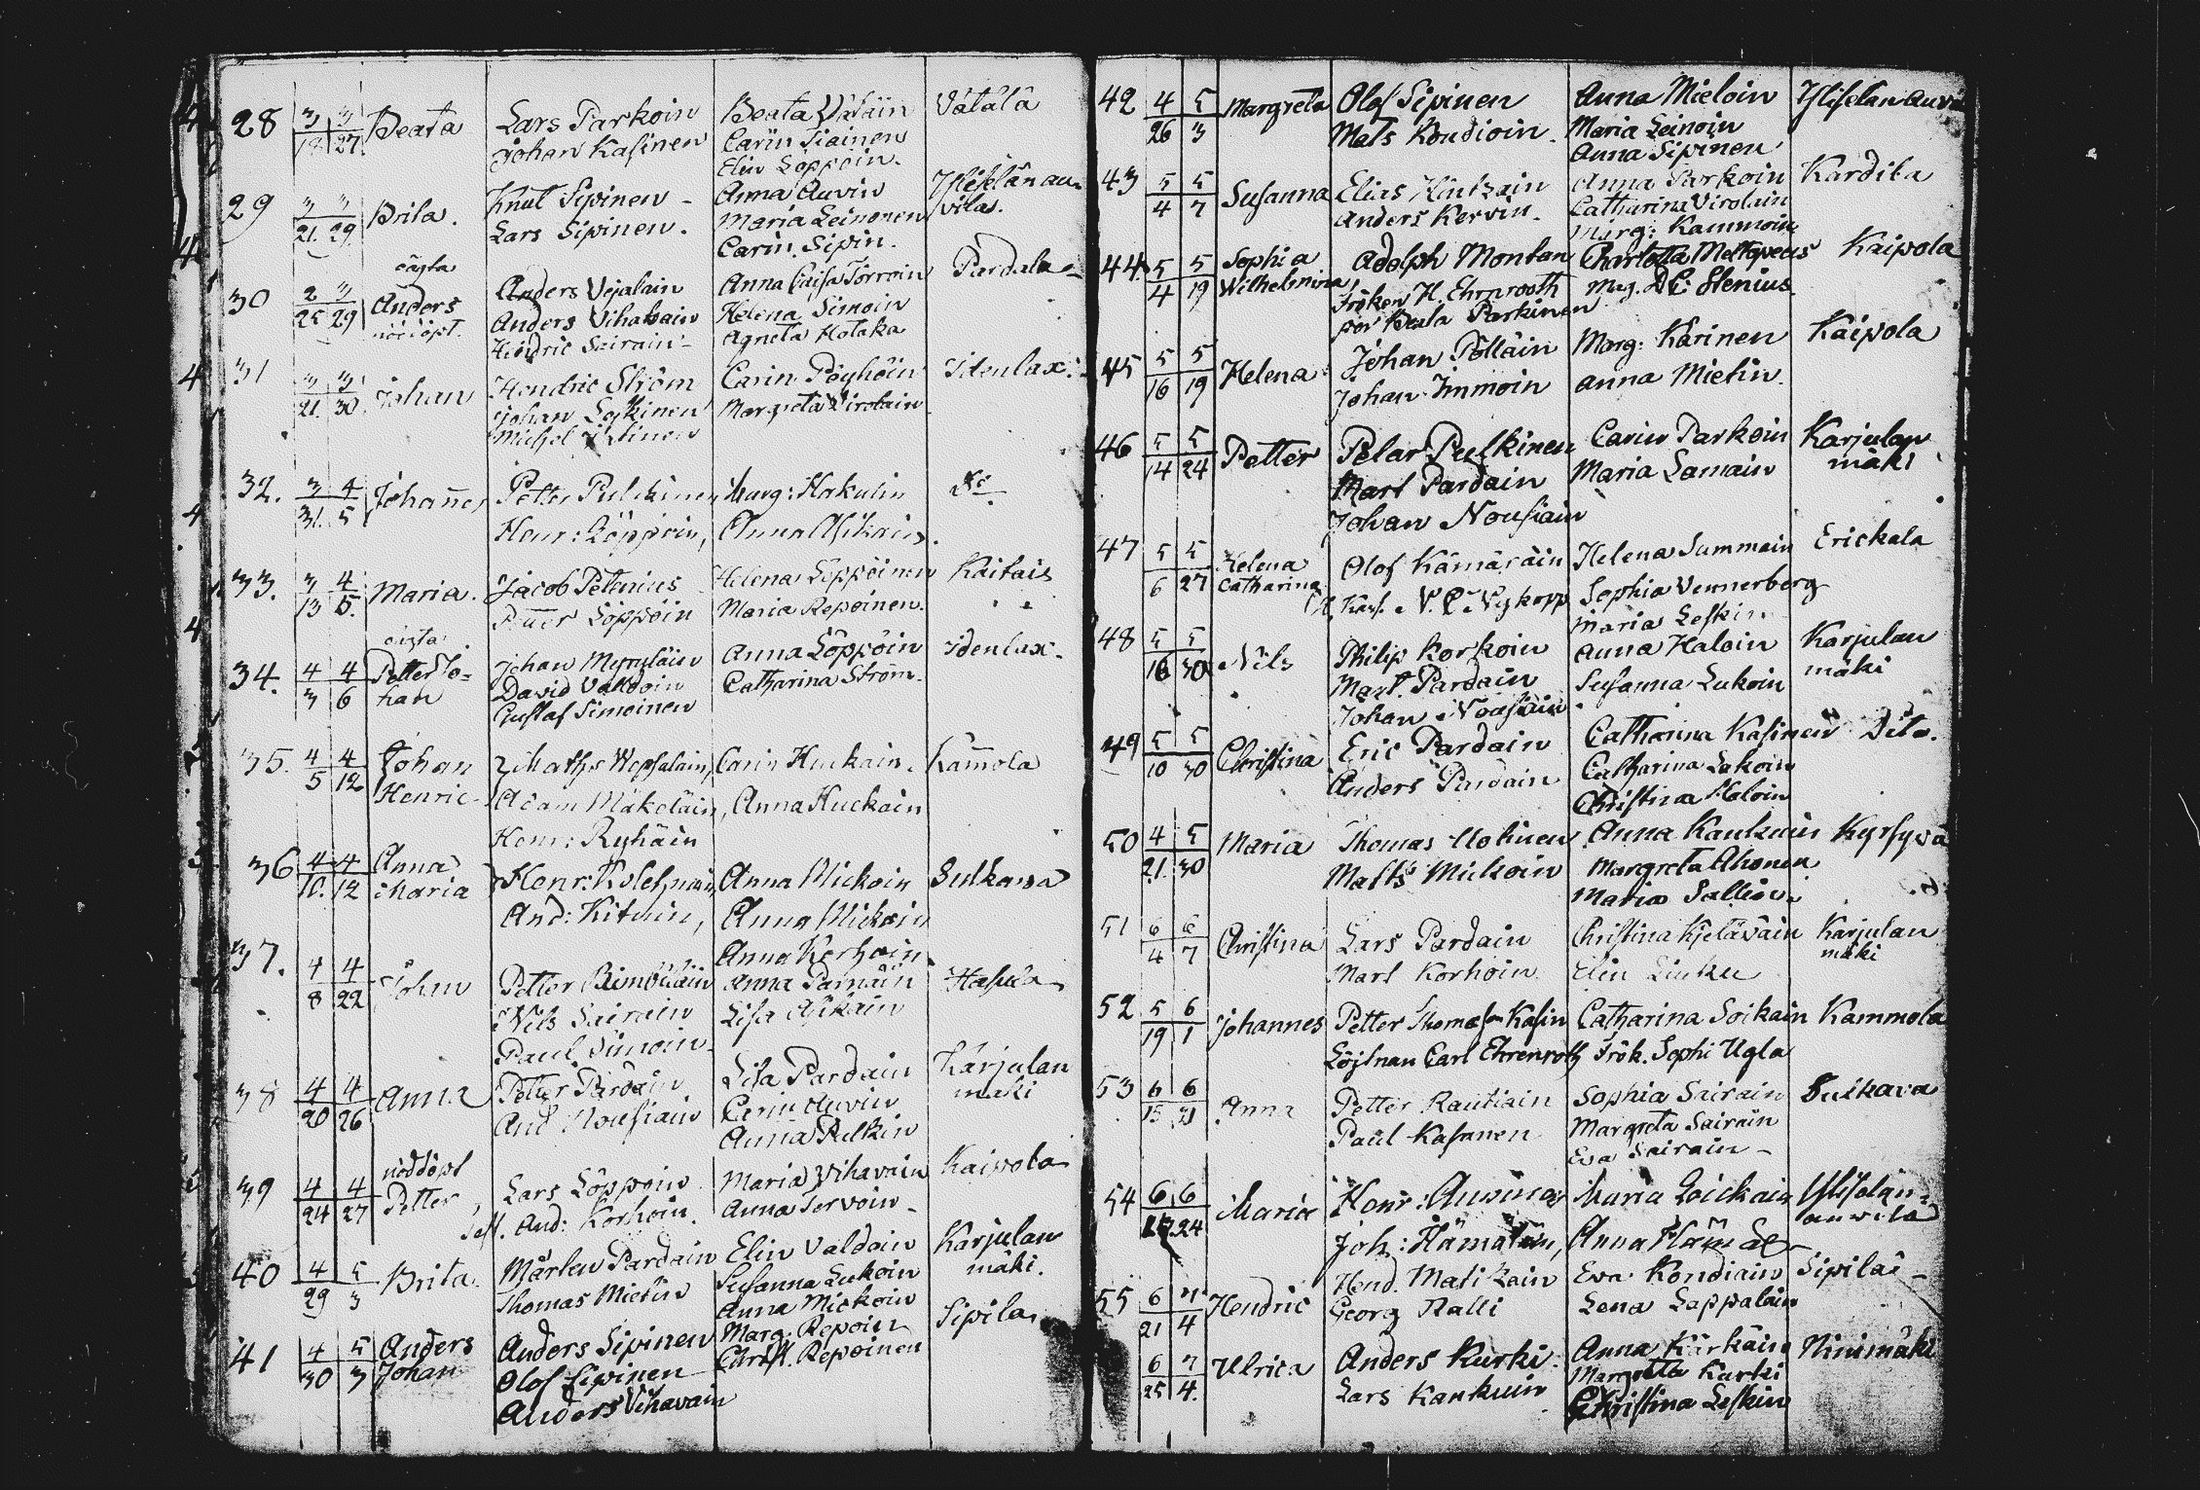 28 3/18 3/27 Beata Lars Parkoin Beata Väläin Vätälä
Johan Kasinen Carin Tiainen
Elin Löppöin.
29 3/21. 3/29. Brita. Knut Sipinen Anna Auvin Ylisilän au-
Lars Sipinen. Maria Leinonen vila.
Carin Sipin.
30 2/25 3/29 oägta Anders nöddöpt. Anders Anna Caisa Torroin Pardala
Anders Vihavain Helena Simoin
Hindric Sairain Agneta Hotaka
31 3/21. 3/30. Johan Hendric Ström Carin Pöyhöin Idenlax.
Johan Margreta Virolain
Michel
32. 3/31. 4/5 Johannes Petter Pulckinen Marg: Hakulin Do
Henr: Löppöin, Anna Asikain.
33. 3/13 4/5. Maria. Jacob Petenius Helena Löppöinen Kaitais
Petter Löppöin Maria Repoinen.
34. 4/3 4/6 oägta Petter Jo=han Johan Myryläin Anna Löppöin Idenlax.
David Valdoin Catharina Ström.
Gustaf Simoinen
35. 4/5 4/12 Johan Henric Maths Wepsalain, Carin Huckain. Kam̄ola
Adam Mäkeläin, Anna Huckain
Henr: Ryhäin
36 4/10. 4/12 Anna Maria Henr: Kolehmain, Anna Mickoin Sulkawa
And: Kituin, Anna Mickoin
37. 4/8 4/22 Johan Petter Anna Korhoin
Nils Sairain Anna Parnäin Hasula
Paul Simoin Lisa Asikain
38 4/20 4/26 Anna Petter Pardain Lisa Pardain Karjulan
And Nousiain Carin Auvin mäki
Anna Pulkin
39 4/24 4/27 nöddöpt Petter Lars Löppöin Maria Vihavain Kaipola
And: Korhoin. Anna Tervoin
40 4/29 5/3 Brita. Mårten Pardain Elin Valdoin Karjulan
Thomas Mietin Susanna Lukoin mäki.
Anna Mickoin
41 4/30 5/3 Anders Johan Anders Sipinen Marg: Repoin Sipilä
Olof Sipinen Christ. Repoinen
Anders Vihavain
42 4/26 5/3 Margreta Olof Sipinen Anna Mieloin Ylisilän Auv
Mats Kondioin. Maria Leinoin
Anna Sipinen
43 5/4 5/7 Susanna Elias Hintzain Anna Parkoin Kardila
Anders Kervin. Catharina Virolain
Marg: Kammoin
44. 5/4 5/19 Sophia Wilhelmina, Adolph Montan Charlotta Kaipola
Fröken H. Ehrnrooth Mag. Stenius
por Beata Parkinen
45 5/16 5/19 Helena Johan Pölläin Marg: Karinen Kaipola
Johan Immoin Anna Mietin.
46 5/14 5/24 Petter Petar Pulkinen Carin Parkoin Karjulan
Mart Pardain Maria Lamain mäki
Johan Nousiain
47 5/6 5/27 Helena Catharina Olof Kämäräin Helena Summain Erickala
N. C. Nykopp Sophia Vennerberg
Maria Leskin
48 5/16 5/30 Nils Philip Korkoin Anna Haloin Karjulan
Mart. Pardain Susanna Lukoin mäki
Johan Nousiain
49 5/10 5/30 Christina Eric Pardain Catharina Kasinen Dito.
Anders Pardain Catharina Lukoin
Christina Haloin
50 4/21. 5/30 Maria Thomas Anna Kankuin Kyrsyvä
Matts Mickoin Margreta Ahonen
Maria
51 6/4 6/7 Christina Lars Pardain Christina Kjetäväin Karjulan
Mart Korhoin Elin mäki
52 5/19 6/1 Johannes Petter Thomasson Kasin Catharina Soikain Kammola
Löjtnan Carl Ehrenroth Frök. Sophi Ugla
53 6/15 6/21 Anna Petter Rautiain Sophia Sairain Sulkava
Paul Kasanen Margreta Sairain
Eva Sairain
54 6/17 6/24 Maria Henr: Auvinen Maria Loickain Ylisilän=
Joh: Hämäläin, Anna Hämäl auvila
55 6/21 7/4 Hendric Hend. Matikain Eva Kondiain Sipilä
Georg Ralli Lena Lappalain
6/25 7/4. Ulrica Anders Kurki Anna Kärkäin Ninimäki
Lars Kankuin Margreta Kurki
Christina Leskin